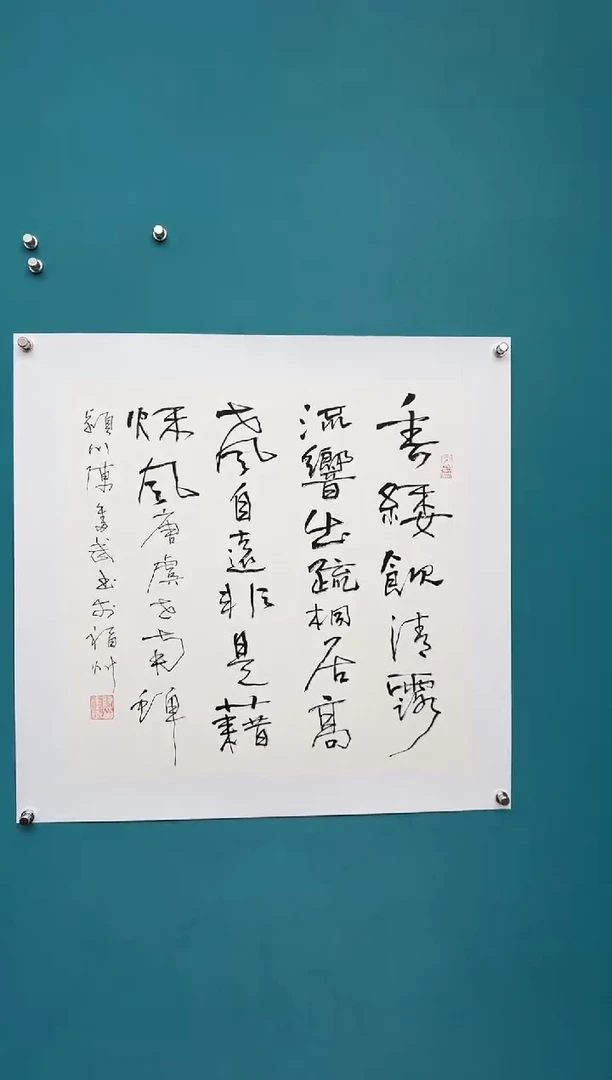 垂緌飲清露
流響出疏桐居高
聲自遠非是藉
秋風唐虞世南蟬
潁川陳武書於福州